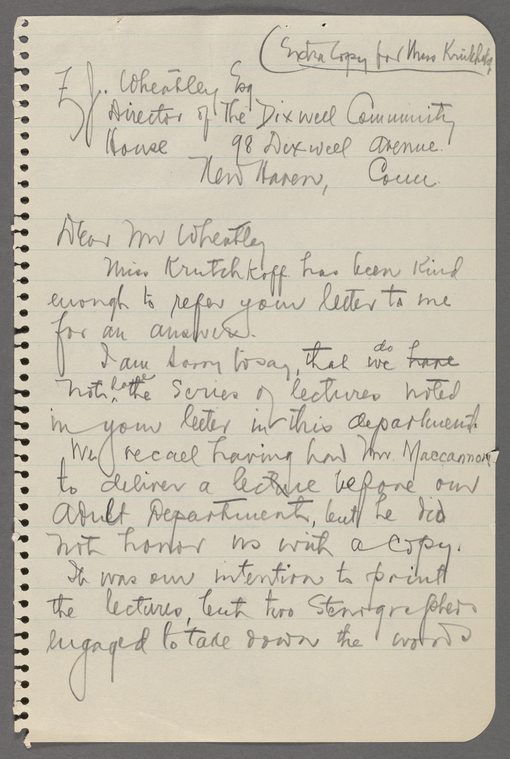 (Extra Copy for Miss Krutchkoff
F. J. Wheatley Esq
Director of the Dixwell Community
House 98 Dixwell Avenue.
New Haven, Conn.
Dear Mr Wheatley
Miss Krutchkoff has been kind
enough to refer your letter to me
for an answer.
I am sorry to say, that we do have
not have the series of lectures noted
in your letter in this department.
We recall having had Mr. Maccannon
to deliver a lecture before our
Adult Department, but he did
not honor us with a copy.
It was our intention to print
the lectures, but two Stenographers
engaged to take down the words